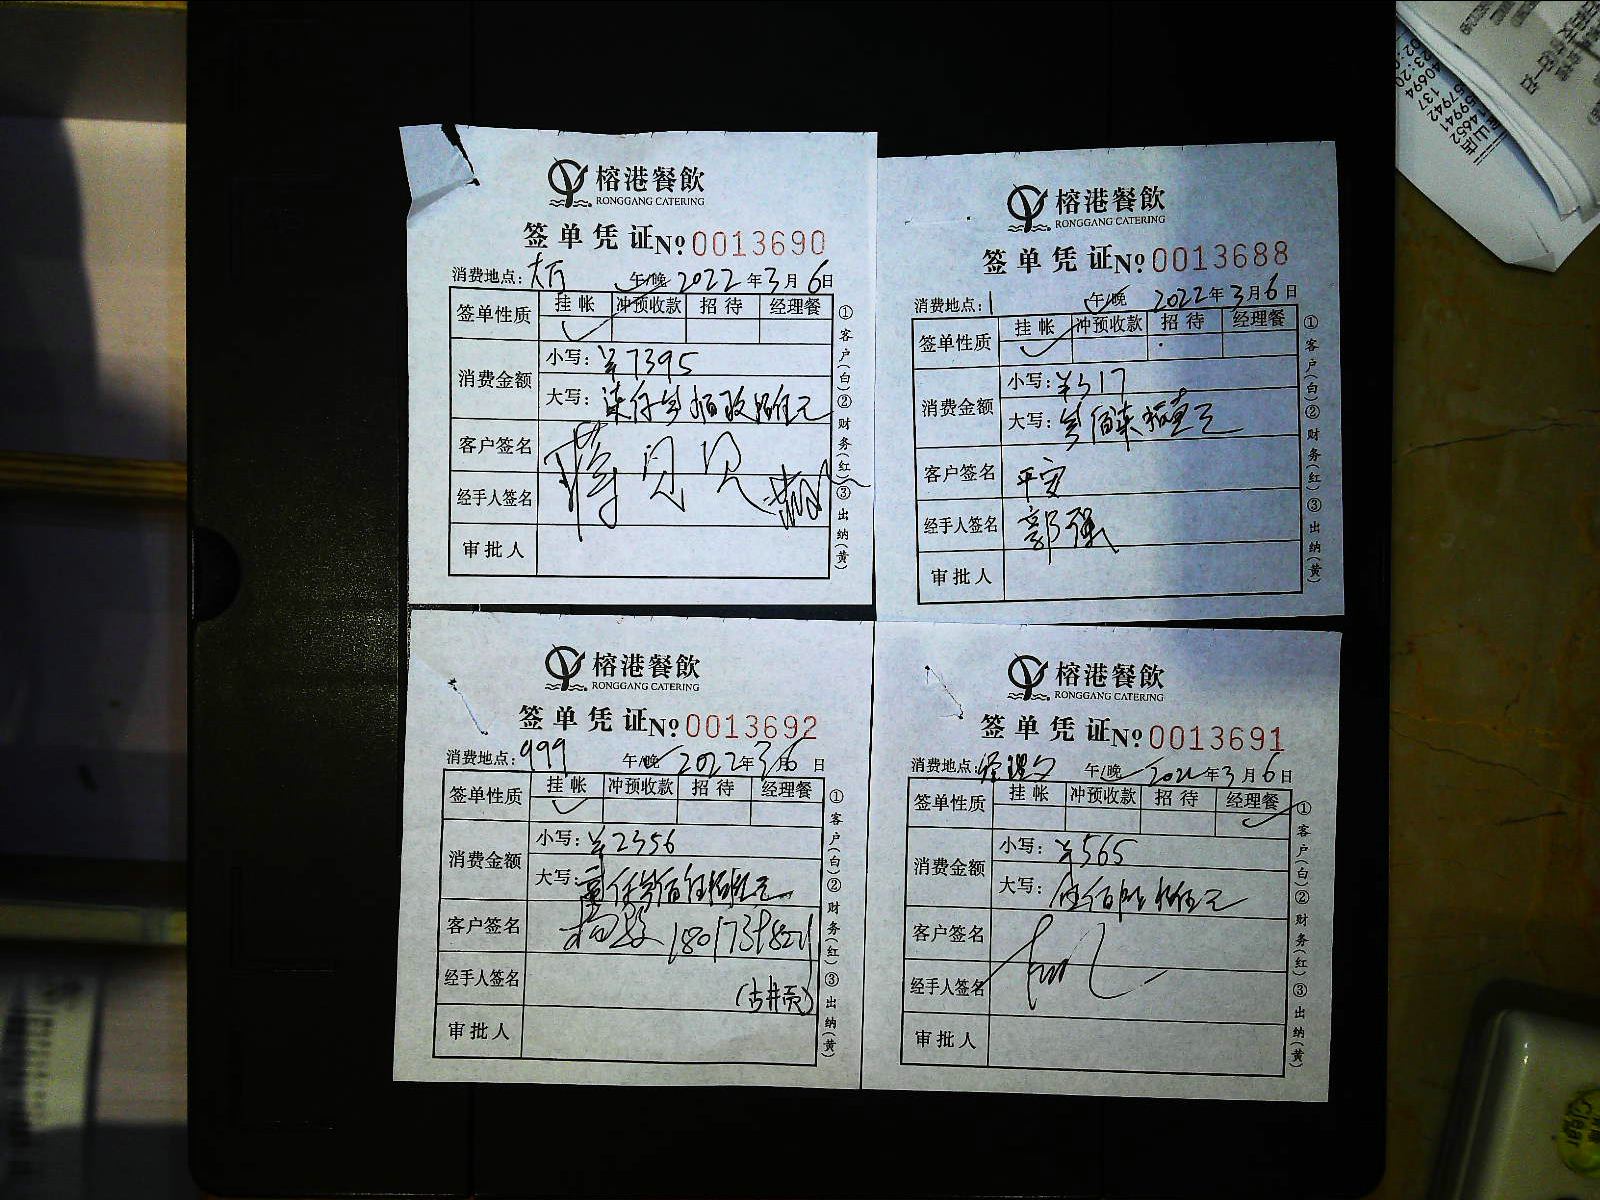 榕港餐飲
RONGGANG CATERING
签单凭证 No 0013690
消费地点: 大厅 午/晚 2022年3月6日
签单性质 挂帐 冲预收款 招待 经理餐
消费金额 小写: ¥7395
大写: 柒仟叁佰玖拾伍元
客户签名
经手人签名
审批人
①客户(白)②财务(红)③出纳(黄)
榕港餐飲
RONGGANG CATERING
签单凭证 No 0013688
消费地点: 午/晚 2022年3月6日
签单性质 挂帐 冲预收款 招待 经理餐
消费金额 小写: ¥317
大写:
客户签名 平安
经手人签名 郭强
审批人
①客户(白)②财务(红)③出纳(黄)
榕港餐飲
RONGGANG CATERING
签单凭证 No 0013692
消费地点: 999 午/晚 2022年3月6日
签单性质 挂帐 冲预收款 招待 经理餐
消费金额 小写: ¥2356
大写:
客户签名
经手人签名 (古井贡)
审批人
①客户(白)②财务(红)③出纳(黄)
榕港餐飲
RONGGANG CATERING
签单凭证 No 0013691
消费地点: 午/晚 2022年3月6日
签单性质 挂帐 冲预收款 招待 经理餐
消费金额 小写: ¥565
大写: 伍佰陆拾伍元
客户签名
经手人签名
审批人
①客户(白)②财务(红)③出纳(黄)